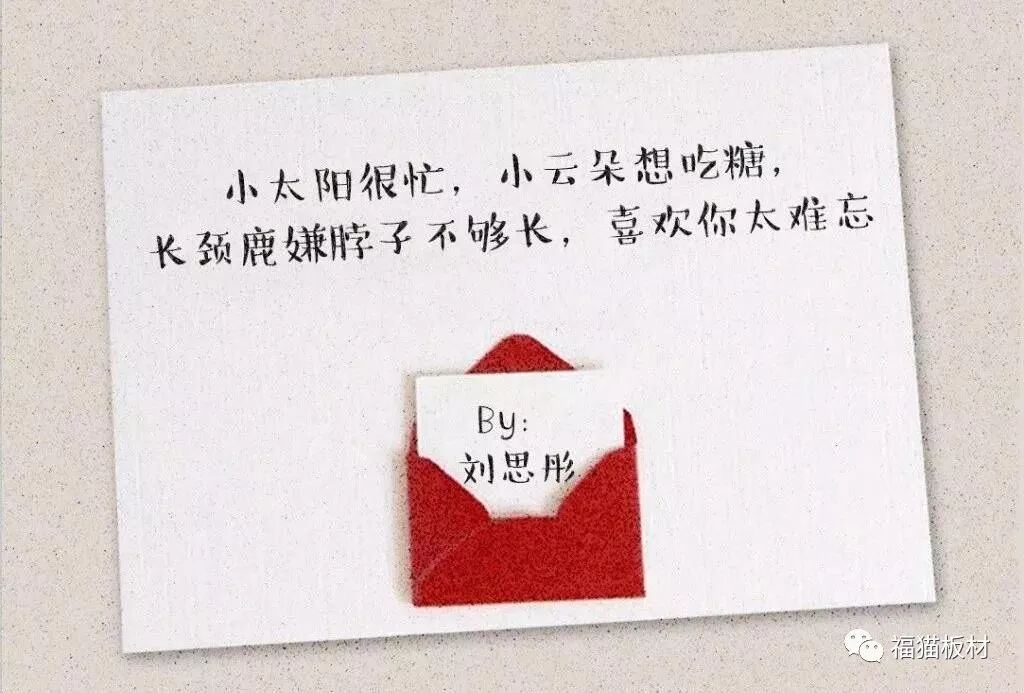 小太阳很忙，小云朵想吃糖，
长颈鹿嫌脖子不够长，喜欢你太难忘
By:
刘思彤
福猫板材